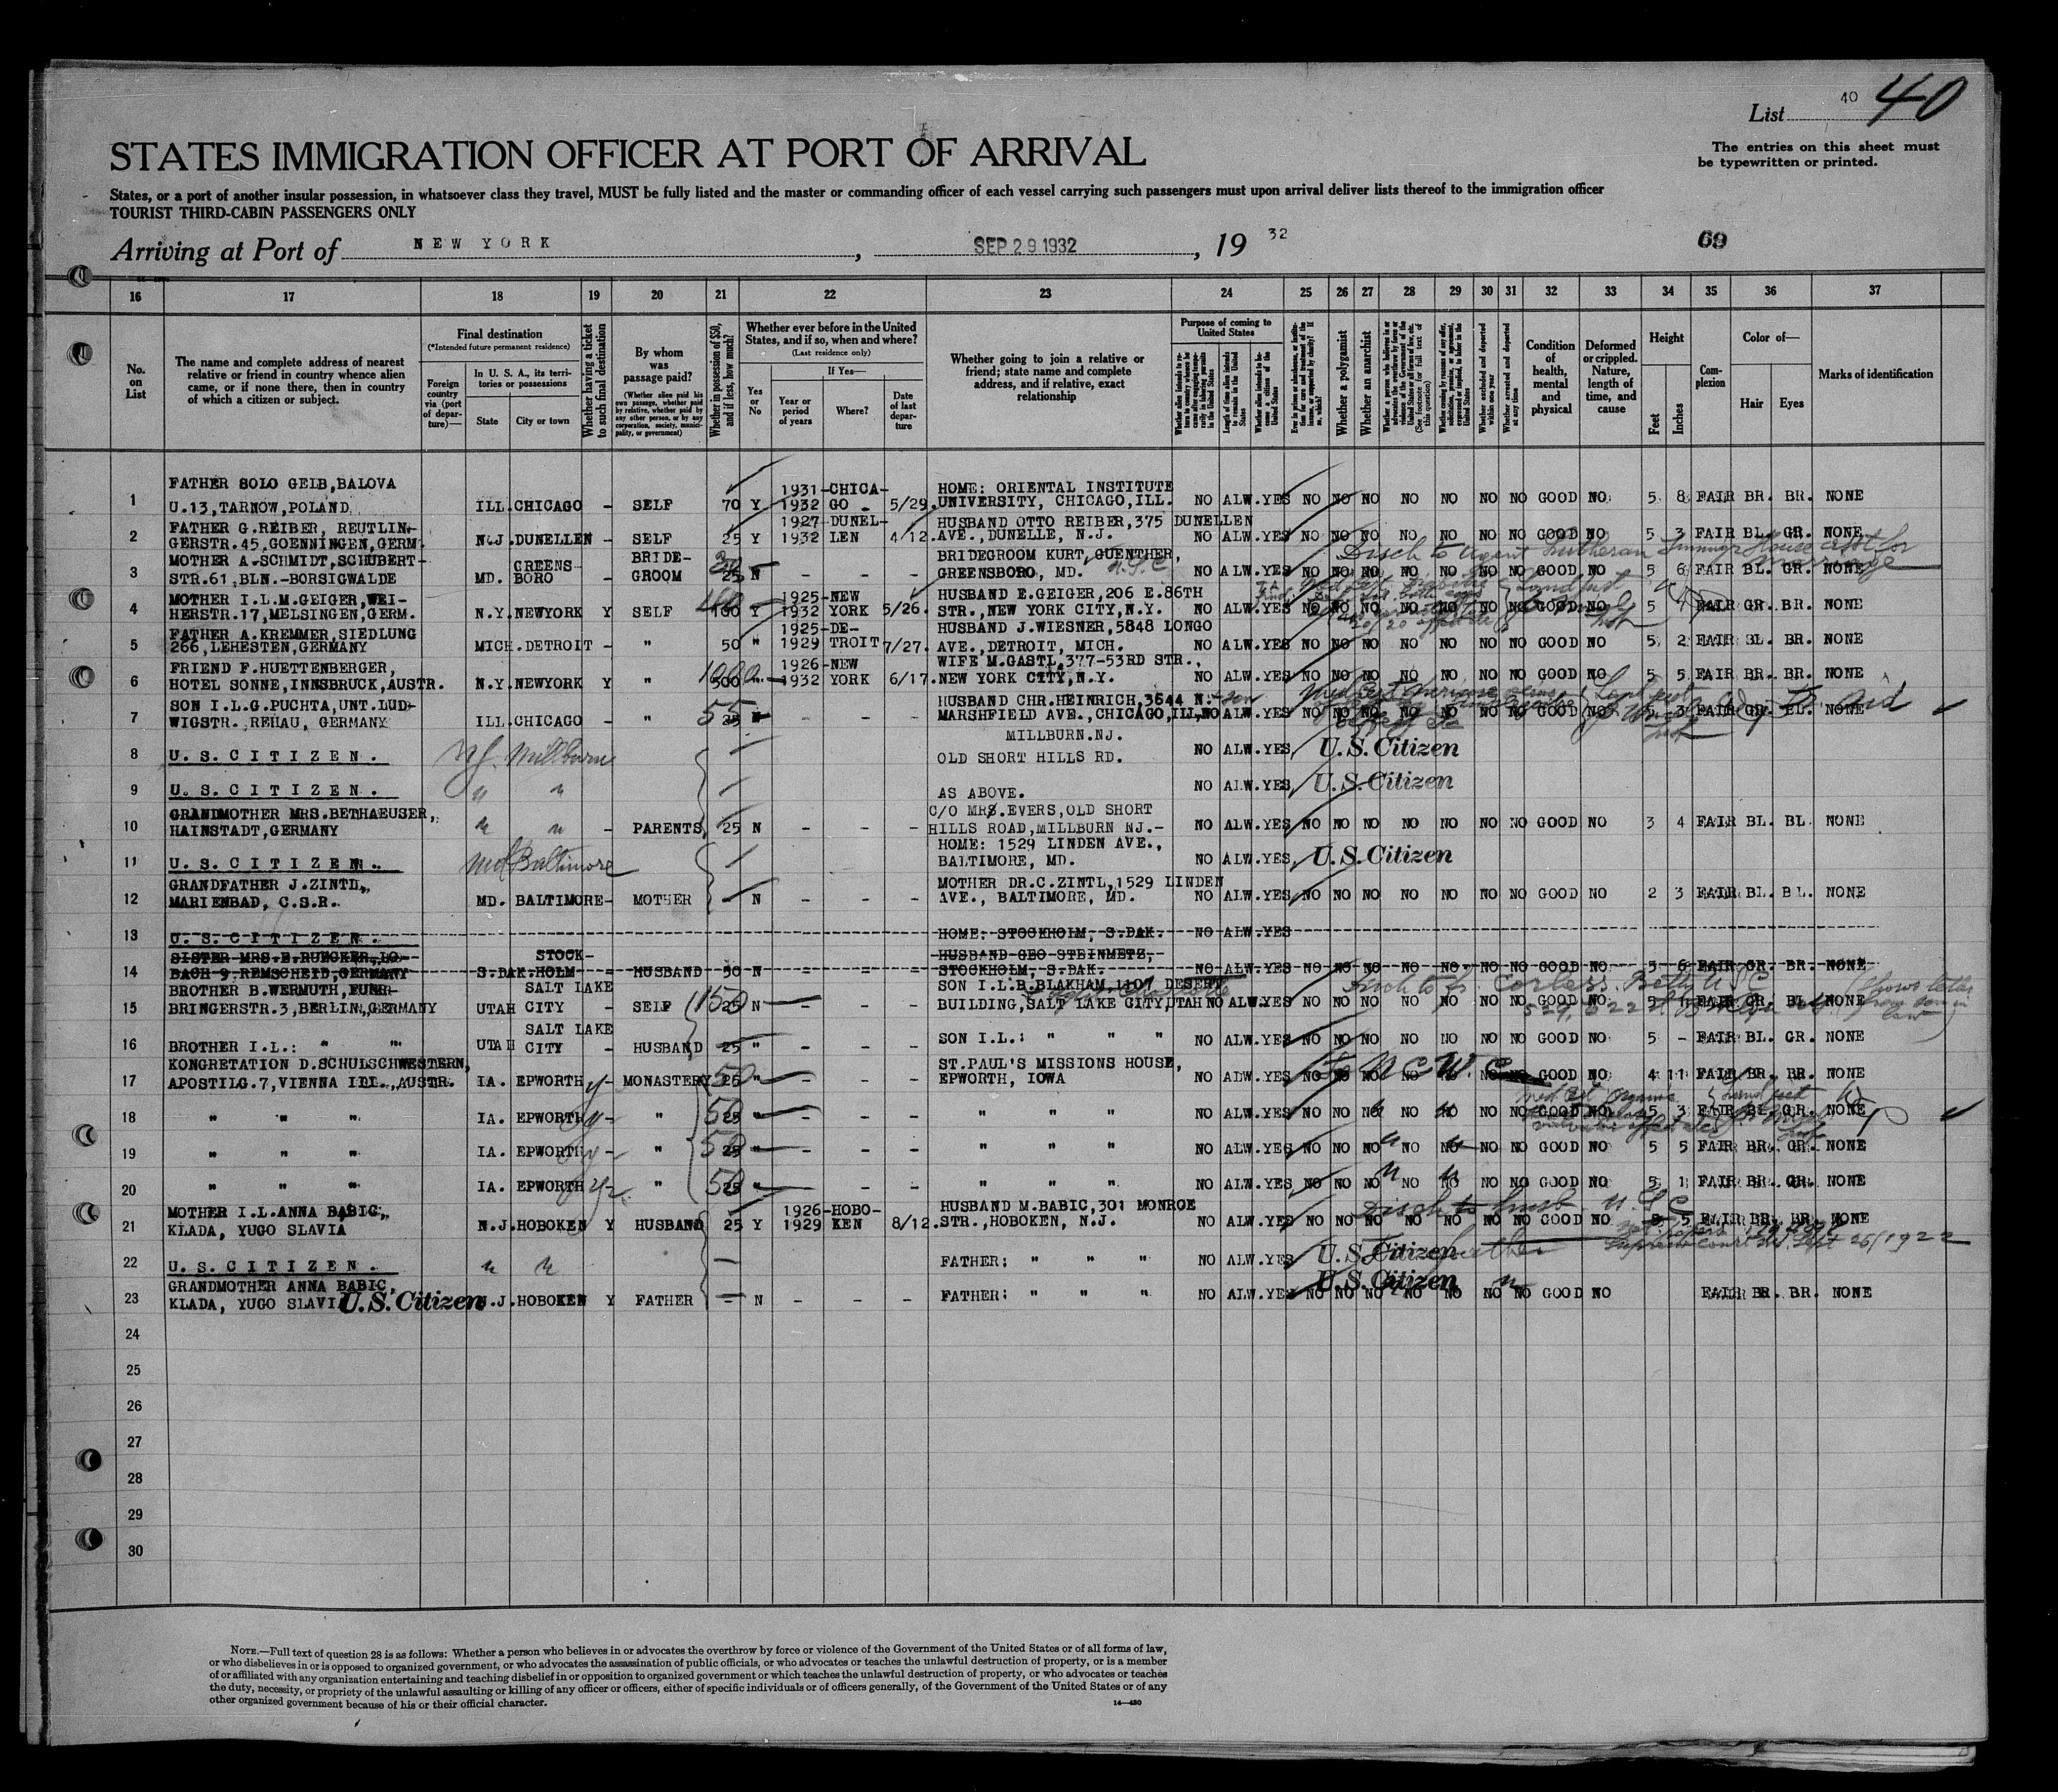 List 40 40
STATES IMMIGRATION OFFICER AT PORT OF ARRIVAL
The entries on this sheet must
be typewritten or printed.
States, or a port of another insular possession, in whatsoever class they travel, MUST be fully listed and the master or commanding officer of each vessel carrying such passengers must upon arrival deliver lists thereof to the immigration officer
TOURIST THIRD-CABIN PASSENGERS ONLY
Arriving at Port of NEW YORK, SEP 29 1932, 19 32
69
16 17 18 19 20 21 22 23 24 25 26 27 28 29 30 31 32 33 34 35 36 37
No. on List
The name and complete address of nearest
relative or friend in country whence alien
came, or if none there, then in country
of which a citizen or subject.
Final destination
(*Intended future permanent residence)
Foreign country via (port of departure)—
In U. S. A., its territories or possessions
State City or town
Whether having a ticket to such final destination
By whom was passage paid?
(Whether alien paid his own passage, whether paid by relative, whether paid by any other person, or by any corporation, society, municipality, or government)
Whether in possession of $50, and if less, how much?
Whether ever before in the United
States, and if so, when and where?
(Last residence only)
Yes or No
If Yes—
Year or period of years
Where?
Date of last departure
Whether going to join a relative or
friend; state name and complete
address, and if relative, exact
relationship
Purpose of coming to United States
Length of time alien intends to remain in the United States
Whether alien intends to become a citizen of the United States
Whether a polygamist
Whether an anarchist
Whether excluded and deported within one year
Whether arrested and deported at any time
Condition of health, mental and physical
Deformed or crippled. Nature, length of time, and cause
Height
Feet Inches
Complexion
Color of—
Hair Eyes
Marks of identification
FATHER SOLO GELB,BALOVA 1931-CHICA- HOME: ORIENTAL INSTITUTE
1 U.13,TARNOW,POLAND ILL. CHICAGO - SELF 70 Y 1932 GO 5/29. UNIVERSITY, CHICAGO,ILL. NO ALW.YES NO NO NO NO NO NO NO GOOD NO 5 8 FAIR BR. BR. NONE
FATHER G.REIBER, REUTLIN- 1927-DUNEL- HUSBAND OTTO REIBER,375 DUNELLEN
2 GERSTR.45,GOENNINGEN,GERM. N.J. DUNELLEN - SELF 25 Y 1932 LEN 4/12. AVE.,DUNELLE, N.J. NO ALW.YES NO NO NO NO NO NO NO GOOD NO 5 3 FAIR BL. GR. NONE
MOTHER A.SCHMIDT,SCHUBERT- GREENS- BRIDE- BRIDEGROOM KURT,GUENTHER, Disch to agent Lutheran
3 STR.61,BLN.-BORSIGWALDE MD. BORO GROOM 25 N - - - GREENSBORO, MD. NO ALW.YES NO NO NO NO NO NO NO GOOD NO 5 6 FAIR BL. GR. NONE marriage
MOTHER I.L.M.GEIGER,WEI- 1925-NEW HUSBAND E.GEIGER,206 E.86TH
4 HERSTR.17,MELSINGEN,GERM. N.Y. NEWYORK Y SELF 100 Y 1932 YORK 5/26. STR.,NEW YORK CITY,N.Y. NO ALW.YES NO NO NO NO NO NO NO GOOD NO 5 FAIR GR. BR. NONE
FATHER A.KREMMER,SIEDLUNG 1925-DE- HUSBAND J.WIESNER,5848 LONGO
5 266,LEHESTEN,GERMANY MICH. DETROIT - " 50 " 1929 TROIT 7/27. AVE.,DETROIT, MICH. NO ALW.YES NO NO NO NO NO NO NO GOOD NO 5 2 FAIR BL. BR. NONE
FRIEND F.HUETTENBERGER, 1000 1926-NEW WIFE M.GASTL,377-53RD STR.,
6 HOTEL SONNE,INNSBRUCK,AUSTR. N.Y. NEWYORK Y " 500 " 1932 YORK 6/17. NEW YORK CITY,N.Y. NO ALW.YES NO NO NO NO NO NO NO GOOD NO 5 5 FAIR BR. BR. NONE
SON I.L.G.PUCHTA,UNT.LUD- 55 HUSBAND CHR.HEINRICH,3644 N.
7 WIGSTR. REHAU, GERMANY ILL. CHICAGO - " 25 N - - - MARSHFIELD AVE.,CHICAGO,ILL. NO ALW.YES NO NO NO NO NO NO NO GOOD NO 5 3 FAIR GR. BL. NONE
MILLBURN.NJ.
8 U.S.CITIZEN. NJ. Millburn OLD SHORT HILLS RD. NO ALW.YES U.S. Citizen
9 U.S.CITIZEN. " " AS ABOVE. NO ALW.YES U.S. Citizen
GRANDMOTHER MRS.BETHAEUSER, C/O MRS.EVERS,OLD SHORT
10 HAINSTADT,GERMANY " " - PARENTS 25 N - - - HILLS ROAD,MILLBURN NJ.- NO ALW.YES NO NO NO NO NO NO NO GOOD NO 3 4 FAIR BL. BL. NONE
HOME: 1529 LINDEN AVE.,
11 U.S.CITIZEN. Md Baltimore BALTIMORE, MD. NO ALW.YES. U.S. Citizen
GRANDFATHER J.ZINTL, MOTHER DR.C.ZINTL,1529 LINDEN
12 MARIENBAD, C.S.R. MD. BALTIMORE- MOTHER - N - - - AVE., BALTIMORE, MD. NO ALW.YES NO NO NO NO NO NO NO GOOD NO 2 3 FAIR BL. BL. NONE
13 U.S.CITIZEN. HOME: STOCKHOLM, S.DAK. NO ALW.YES
SISTER MRS.E.RUECKER,LO- STOCK- HUSBAND GEO STEINMETZ,
14 BACH 9.REMSCHEID,GERMANY S.DAK. HOLM = HUSBAND 50 N = = = STOCKHOLM, S.DAK. NO ALW.YES NO NO NO NO NO NO NO GOOD NO 5 6 FAIR GR. BR. NONE
BROTHER B.WERMUTH,FUHR- SALT LAKE SON I.L.B.BLAKHAM,1107 DESERT
15 BRINGERSTR.3,BERLIN,GERMANY UTAH CITY - SELF 1150 25 N - - - BUILDING,SALT LAKE CITY,UTAH NO ALW.YES NO NO NO NO NO NO NO GOOD NO 5 1 FAIR GR. BL. NONE
SALT LAKE
16 BROTHER I.L.: " " UTAH CITY - HUSBAND 25 " - - - SON I.L.: " " " NO ALW.YES NO NO NO NO NO NO NO GOOD NO 5 - FAIR BL. GR. NONE
KONGRETATION D.SCHULSCHWESTERN, 50 ST.PAUL'S MISSIONS HOUSE,
17 APOSTILG.7,VIENNA III.,AUSTR. IA. EPWORTH y - MONASTERY 25 " - - - EPWORTH, IOWA NO ALW.YES NO NO NO NO NO NO NO GOOD NO 4 11 FAIR BR. BR. NONE
18 " " " IA. EPWORTH y - " 50 25 " - - - " " " NO ALW.YES NO NO NO NO NO NO NO GOOD NO 5 3 FAIR BL. GR. NONE
19 " " " IA. EPWORTH y - " 50 25 " - - - " " " NO ALW.YES NO NO NO NO NO NO NO GOOD NO 5 5 FAIR BR. GR. NONE
20 " " " IA. EPWORTH y - " 50 25 " - - - " " " NO ALW.YES NO NO NO NO NO NO NO GOOD NO 5 1 FAIR BR. GR. NONE
MOTHER I.L.ANNA BABIC, 1926-HOBO- HUSBAND M.BABIC,301 MONROE Disch to husb. U S C
21 KLADA, YUGO SLAVIA N.J. HOBOKEN Y HUSBAND 25 Y 1929 KEN 8/12. STR.,HOBOKEN, N.J. NO ALW.YES NO NO NO NO NO NO NO GOOD NO 5 5 FAIR BR. BR. NONE
22 U.S.CITIZEN. " " FATHER: " " " NO ALW.YES U.S. Citizen
GRANDMOTHER ANNA BABIC, U.S. Citizen
23 KLADA, YUGO SLAVIA U.S. Citizen N.J. HOBOKEN Y FATHER - N - - - FATHER: " " " NO ALW.YES NO NO NO NO NO NO NO GOOD NO FAIR BR. BR. NONE
24
25
26
27
28
29
30
NOTE.—Full text of question 28 is as follows: Whether a person who believes in or advocates the overthrow by force or violence of the Government of the United States or of all forms of law,
or who disbelieves in or is opposed to organized government, or who advocates the assassination of public officials, or who advocates or teaches the unlawful destruction of property, or is a member
of or affiliated with any organization entertaining and teaching disbelief in or opposition to organized government or which teaches the unlawful destruction of property, or who advocates or teaches
the duty, necessity, or propriety of the unlawful assaulting or killing of any officer or officers, either of specific individuals or of officers generally, of the Government of the United States or of any
other organized government because of his or their official character.
14—430